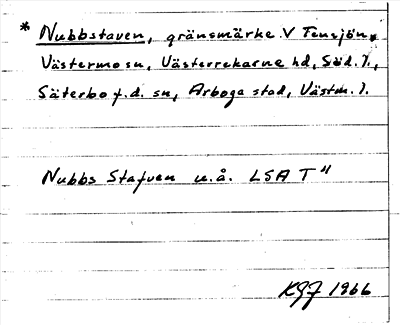 * Nubbstaven, gränsmärke V Tensjön,
Västermo sn, Västerrekarne hd, Söd. l.,
Säterbo f.d. sn, Arboga stad, Västm. l.
Nubbs Stafven u.å. LSA T"
KGJ 1966